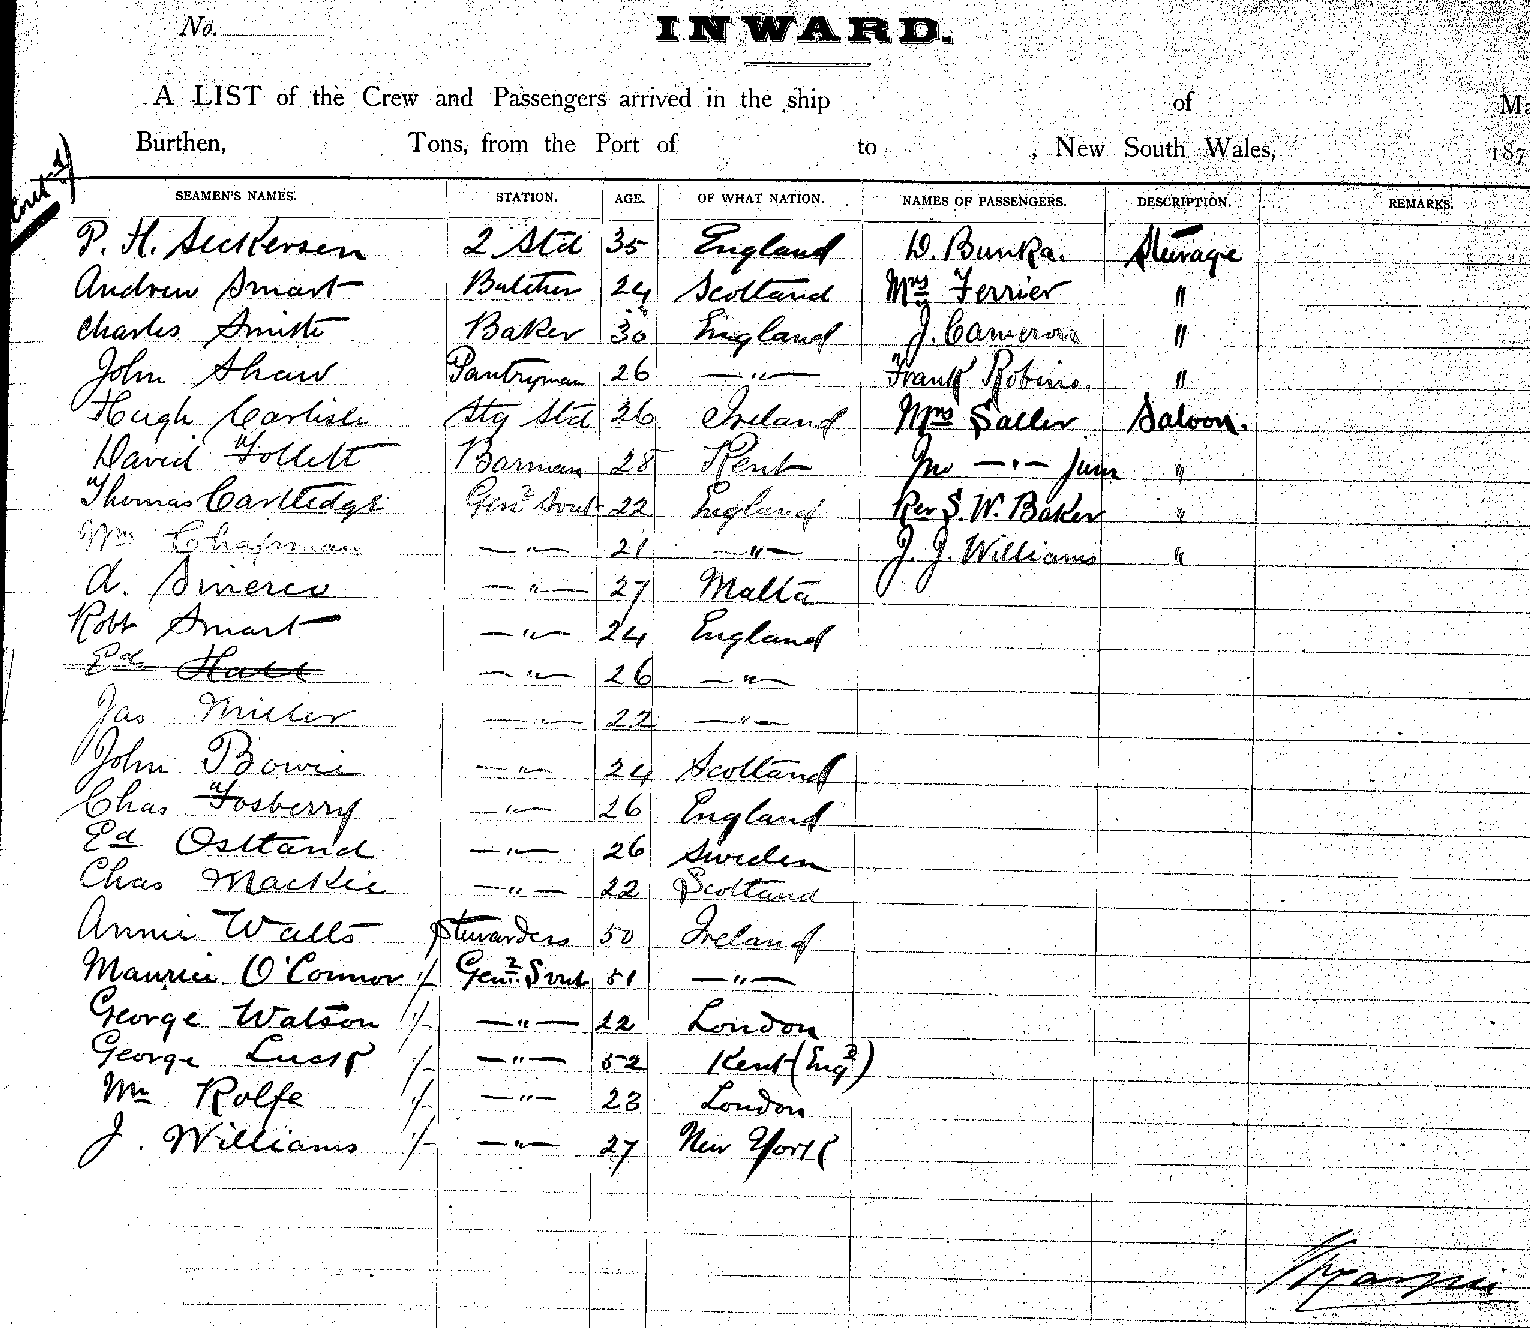 No.
INWARD.
A LIST of the Crew and Passengers arrived in the ship of
Burthen, Tons, from the Port of to , New South Wales, 187
SEAMEN'S NAMES. STATION. AGE. OF WHAT NATION. NAMES OF PASSENGERS. DESCRIPTION. REMARKS.
P. H. 2 Std 35 England D. Bunka. Steerage
Andrew Smart Butcher 24 Scotland Mrs Ferrier "
Charles Smith Baker 30 England J. Cameron "
John Shaw Pantryman 26 —"— Frank Robins. "
Hugh Carlisle Stg Std 26 Ireland Mrs Saller Saloon.
David Follett Barman 28 Kent Jno —"— Junr "
Thomas Cartledge Genl Servt 22 England Rev S. W. Baker "
Wm Chapman —"— 21 —"— J. J. Williams "
A. —"— 27 Malta
Robt Smart —"— 24 England
Ed Hall —"— 26 —"—
Jas Miller —"— 22 —"—
John Bowie —"— 24 Scotland
Chas Fosberry —"— 26 England
Ed Ostland —"— 26 Sweden
Chas Mackie —"— 22 Scotland
Annie Watts Stewardess 50 Ireland
Maurice O'Connor 1/- Genl Servt 51 —"—
George Watson 1/- —"— 22 London
George Luck 1/- —"— 52 Kent (Engd)
Wm Rolfe 1/- —"— 23 London
J. Williams 1/- —"— 27 New York